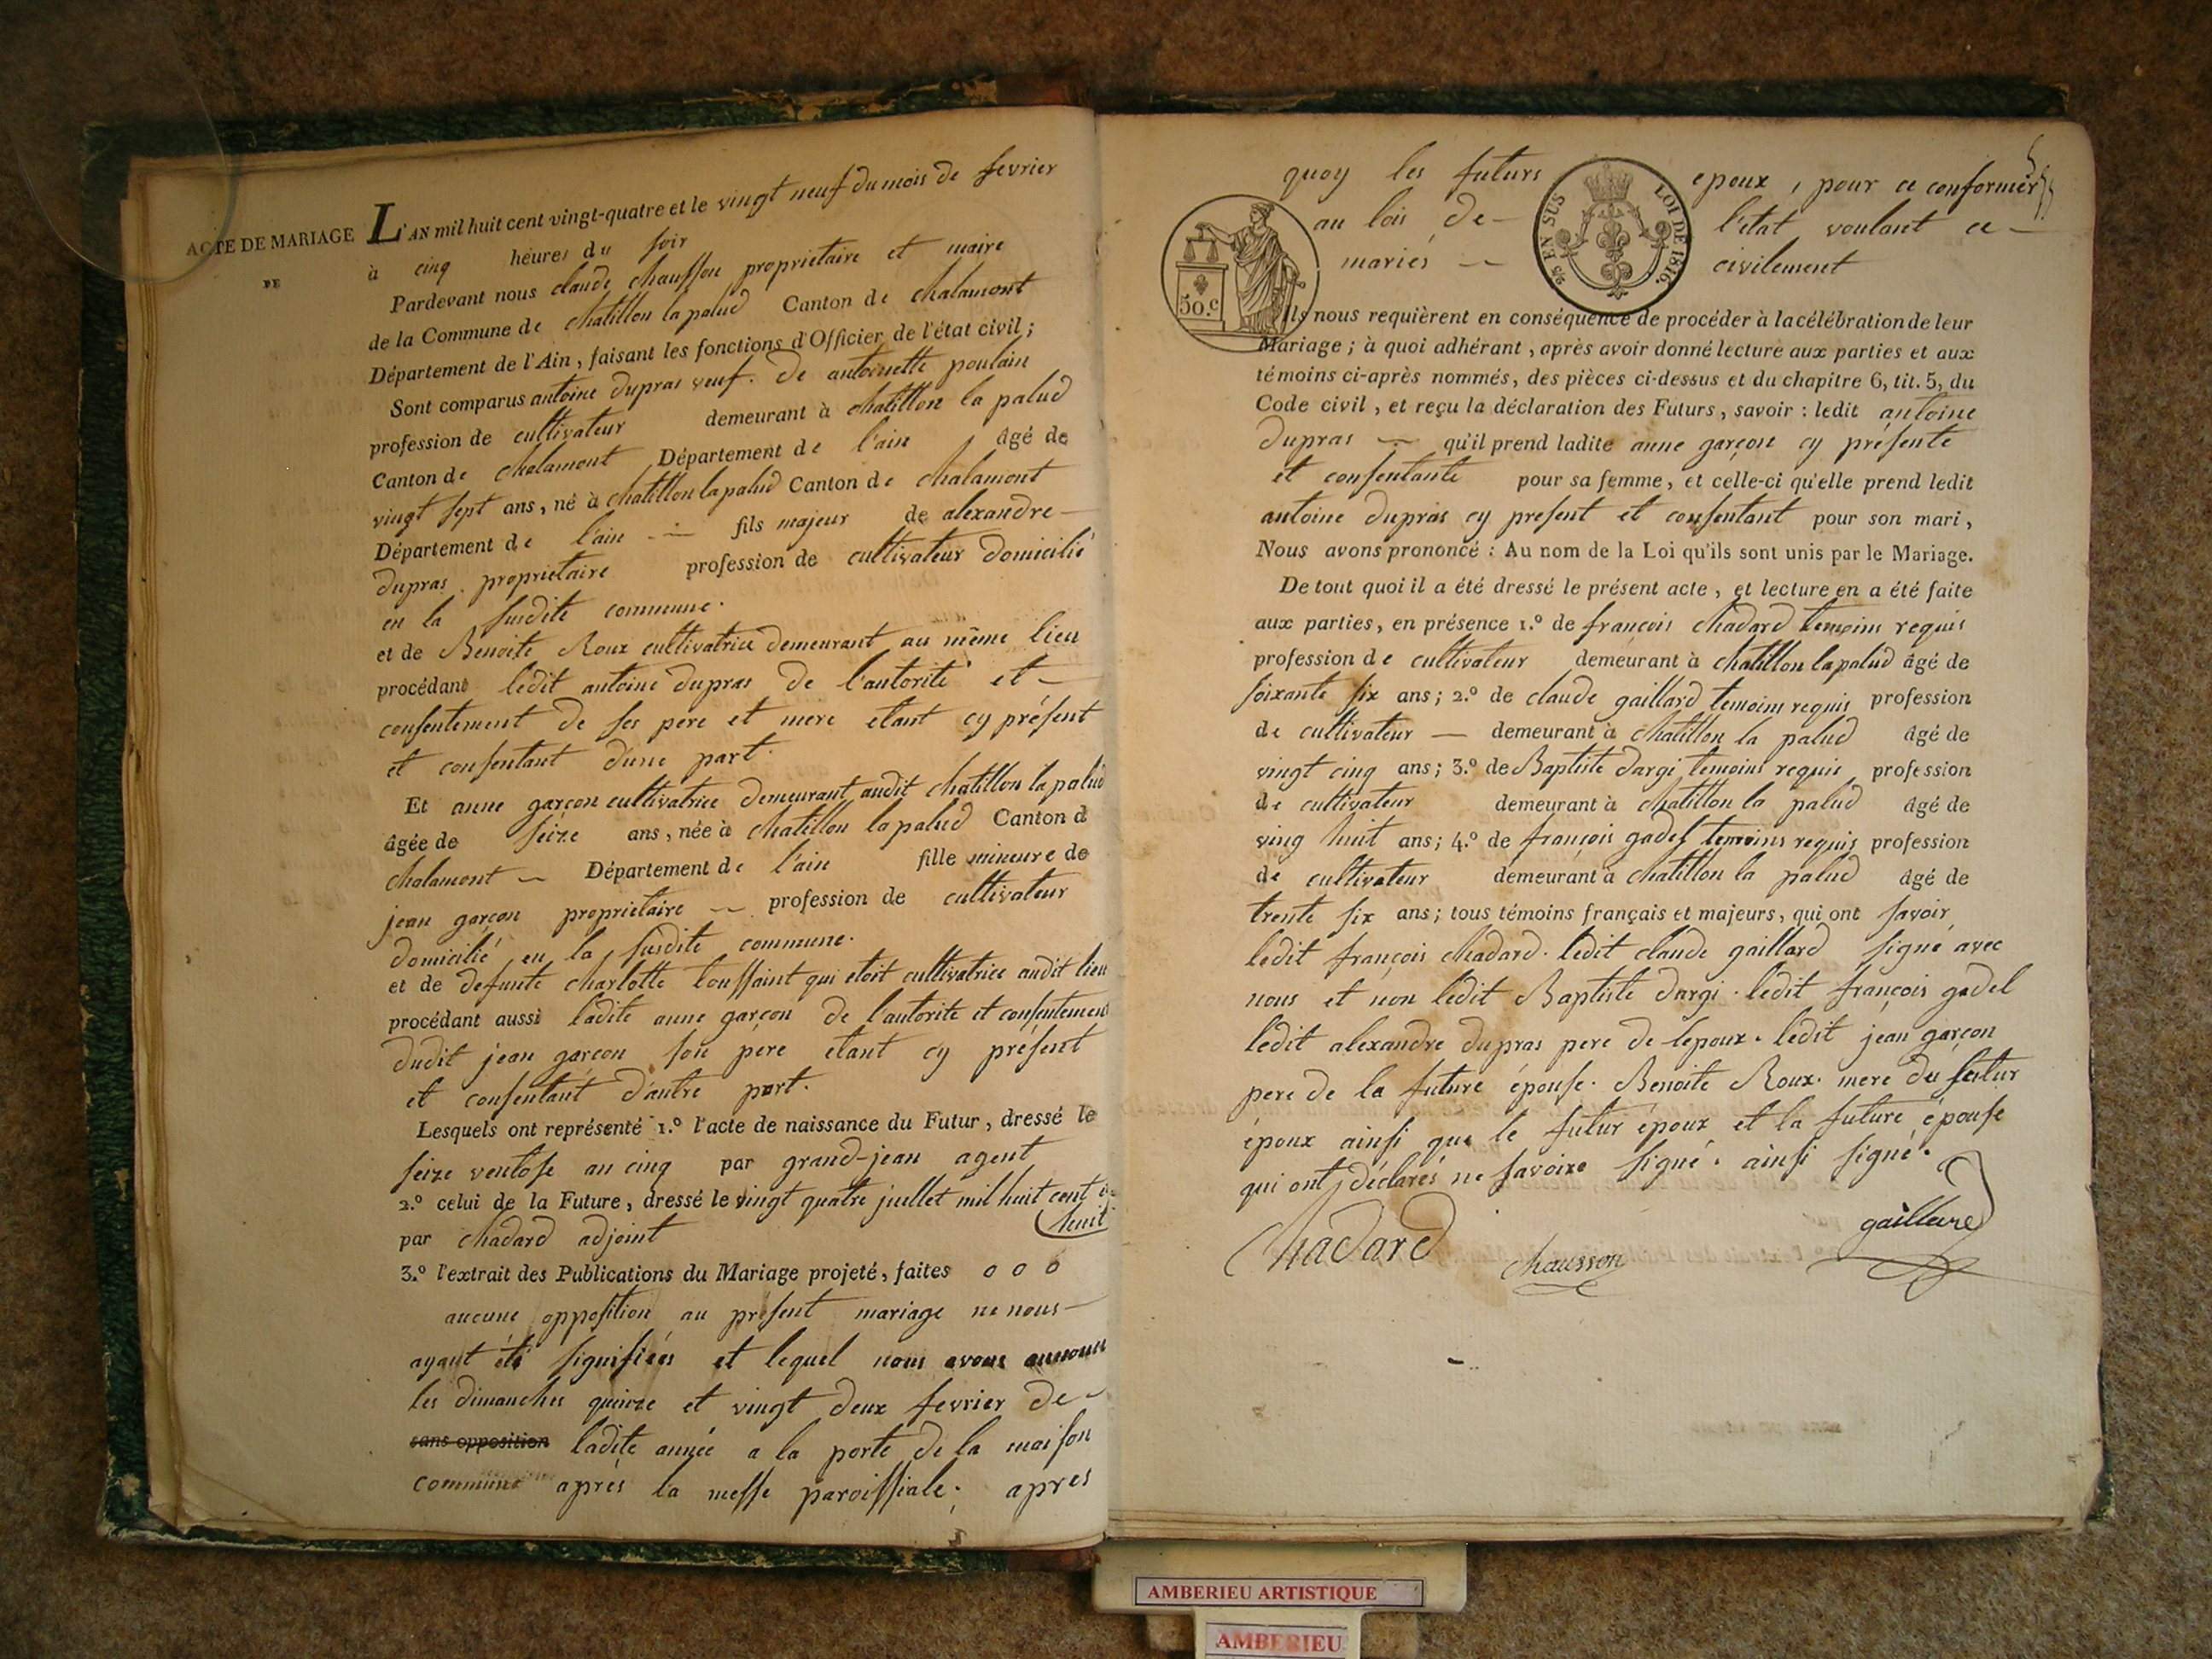 ACTE DE MARIAGE
DE
L'AN mil huit cent vingt-quatre et le vingt neuf du mois de fevrier
à cinq heures du soir
Pardevant nous claude chausson proprietaire et maire
de la Commune de chatillon la palud Canton de chalamont
Département de l'Ain, faisant les fonctions d'Officier de l'état civil;
Sont comparus antoine dupras veuf. de antoinette poulain
profession de cultivateur demeurant à chatillon la palud
Canton de chalamont Département de l'ain âgé de
vingt sept ans, né à chatillon lapalud Canton de chalamont
Département de l'ain fils majeur de alexandre
dupras proprietaire profession de cultivateur domicilié
en la susdite commune.
et de Benoite Roux cultivatrice demeurant au même lieu
procédant ledit antoine dupras de l'autorité et
consentement de ses pere et mere etant cy présent
et consentant d'une part.
Et anne garçon cultivatrice demeurant audit chatillon la palud
âgée de seize ans, née à chatillon la palud Canton d
chalamont Département de l'ain fille mineure de
jean garçon proprietaire profession de cultivateur
domicilié en la susdite commune.
et de defunte charlotte toussaint qui etoit cultivatrice audit lieu
procédant aussi ladite anne garçon de l'autorité et consentement
dudit jean garçon son pere etant cy présent
et consentant d'autre part.
Lesquels ont représenté 1.º l'acte de naissance du Futur, dressé le
seize ventose an cinq par grand-jean agent
2.º celui de la Future, dressé le vingt quatre juillet mil huit cent
huit
par chadard adjoint
3.º l'extrait des Publications du Mariage projeté, faites o o o
aucune opposition au présent mariage ne nous
ayant été signifiées et lequel nous avons
les dimanches quinze et vingt deux fevrier de
sans opposition ladite année a la porte de la maison
commune après la messe paroissiale. apres
quoy les futurs epoux, pour ce conformer
au lois de l'état voulant ce
mariés civilement
50.c
2/5 EN SUS
LOI DE 1816.
Ils nous requièrent en conséquence de procéder à la célébration de leur
Mariage; à quoi adhérant, après avoir donné lecture aux parties et aux
témoins ci-après nommés, des pièces ci-dessus et du chapitre 6, tit. 5, du
Code civil, et reçu la déclaration des Futurs, savoir: ledit antoine
dupras qu'il prend ladite anne garçon cy présente
et consentante pour sa femme, et celle-ci qu'elle prend ledit
antoine dupras cy present et consentant pour son mari,
Nous avons prononcé: Au nom de la Loi qu'ils sont unis par le Mariage.
De tout quoi il a été dressé le présent acte, et lecture en a été faite
aux parties, en présence 1.º de françois chadard temoins requis
profession de cultivateur demeurant à chatillon lapalud âgé de
soixante six ans; 2.º de claude gaillard temoins requis profession
de cultivateur demeurant à chatillon la palud âgé de
vingt cinq ans; 3.º de Baptiste dargi temoins requis profession
de cultivateur demeurant à chatillon la palud âgé de
ving huit ans; 4.º de françois gadel temoins requis profession
de cultivateur demeurant à chatillon la palud âgé de
trente six ans; tous témoins français et majeurs, qui ont savoir
ledit françois chadard. ledit claude gaillard signé avec
nous et non ledit Baptiste dargi. ledit françois gadel
ledit alexandre dupras pere de lepoux. ledit jean garçon
pere de la future épouse. Benoite Roux. mere du futur
époux ainsi que le futur époux et la future épouse
qui ont déclarés ne savoire signé. ainsi signé.
Chadard
chausson
gaillard
AMBERIEU ARTISTIQUE
AMBERIEU